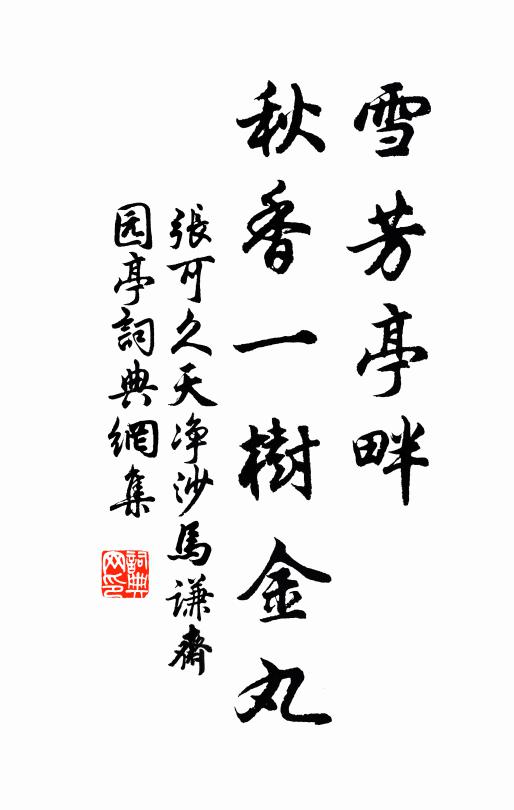 雪芳亭畔
秋香一樹金丸
張可久天净沙馬谦齋
园亭詞典網集
詞典网印